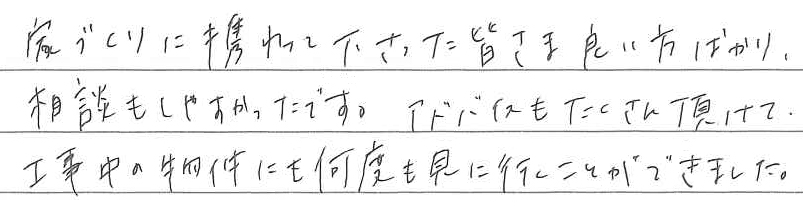 家づくりに携わって下さった皆さま良い方ばかり、
相談もしやすかったです。アドバイスもたくさん頂けて、
工事中の物件にも何度も見に行くことができました。